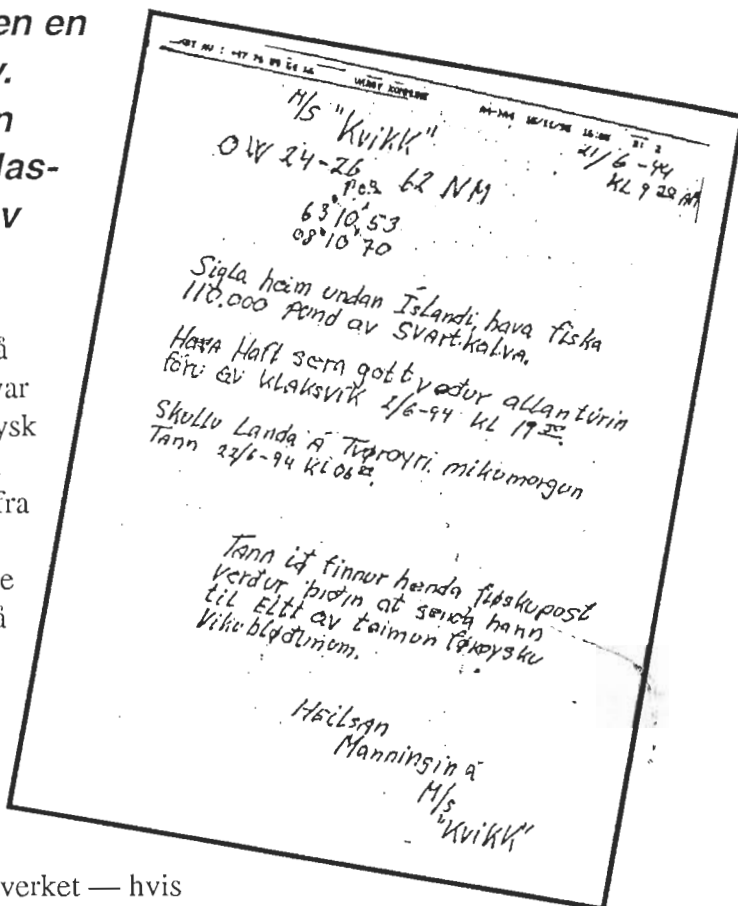 en en
v.
n
las-
v
å
var
ysk
fra
e
å
verket — hvis
M/S "Kvikk"
21/6-94
KL 9 20 AM
OW 24-26 62 NM
Pos
63°10'53
08°10'70
Sigla heim undan Íslandi, hava fiska
110.000 pund av Svartkalva.
Hava Haft sera gott veður allan túrin
fóru av Klaksvík 2/6-94 KL 19 00.
Skullu Landa á Tvøroyri mikumorgun
Tann 22/6-94 Kl 06 00.
Tann ið finnur henda fløskupost
verður biðin at senda hann
til Eitt av teimun føroysku
Vikubløðunum.
Heilsan
Manningin á
M/S
"KviKK"